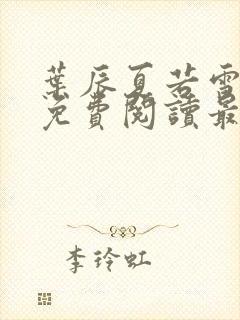 葉辰夏若雪
免費閱讀最
李玲虹